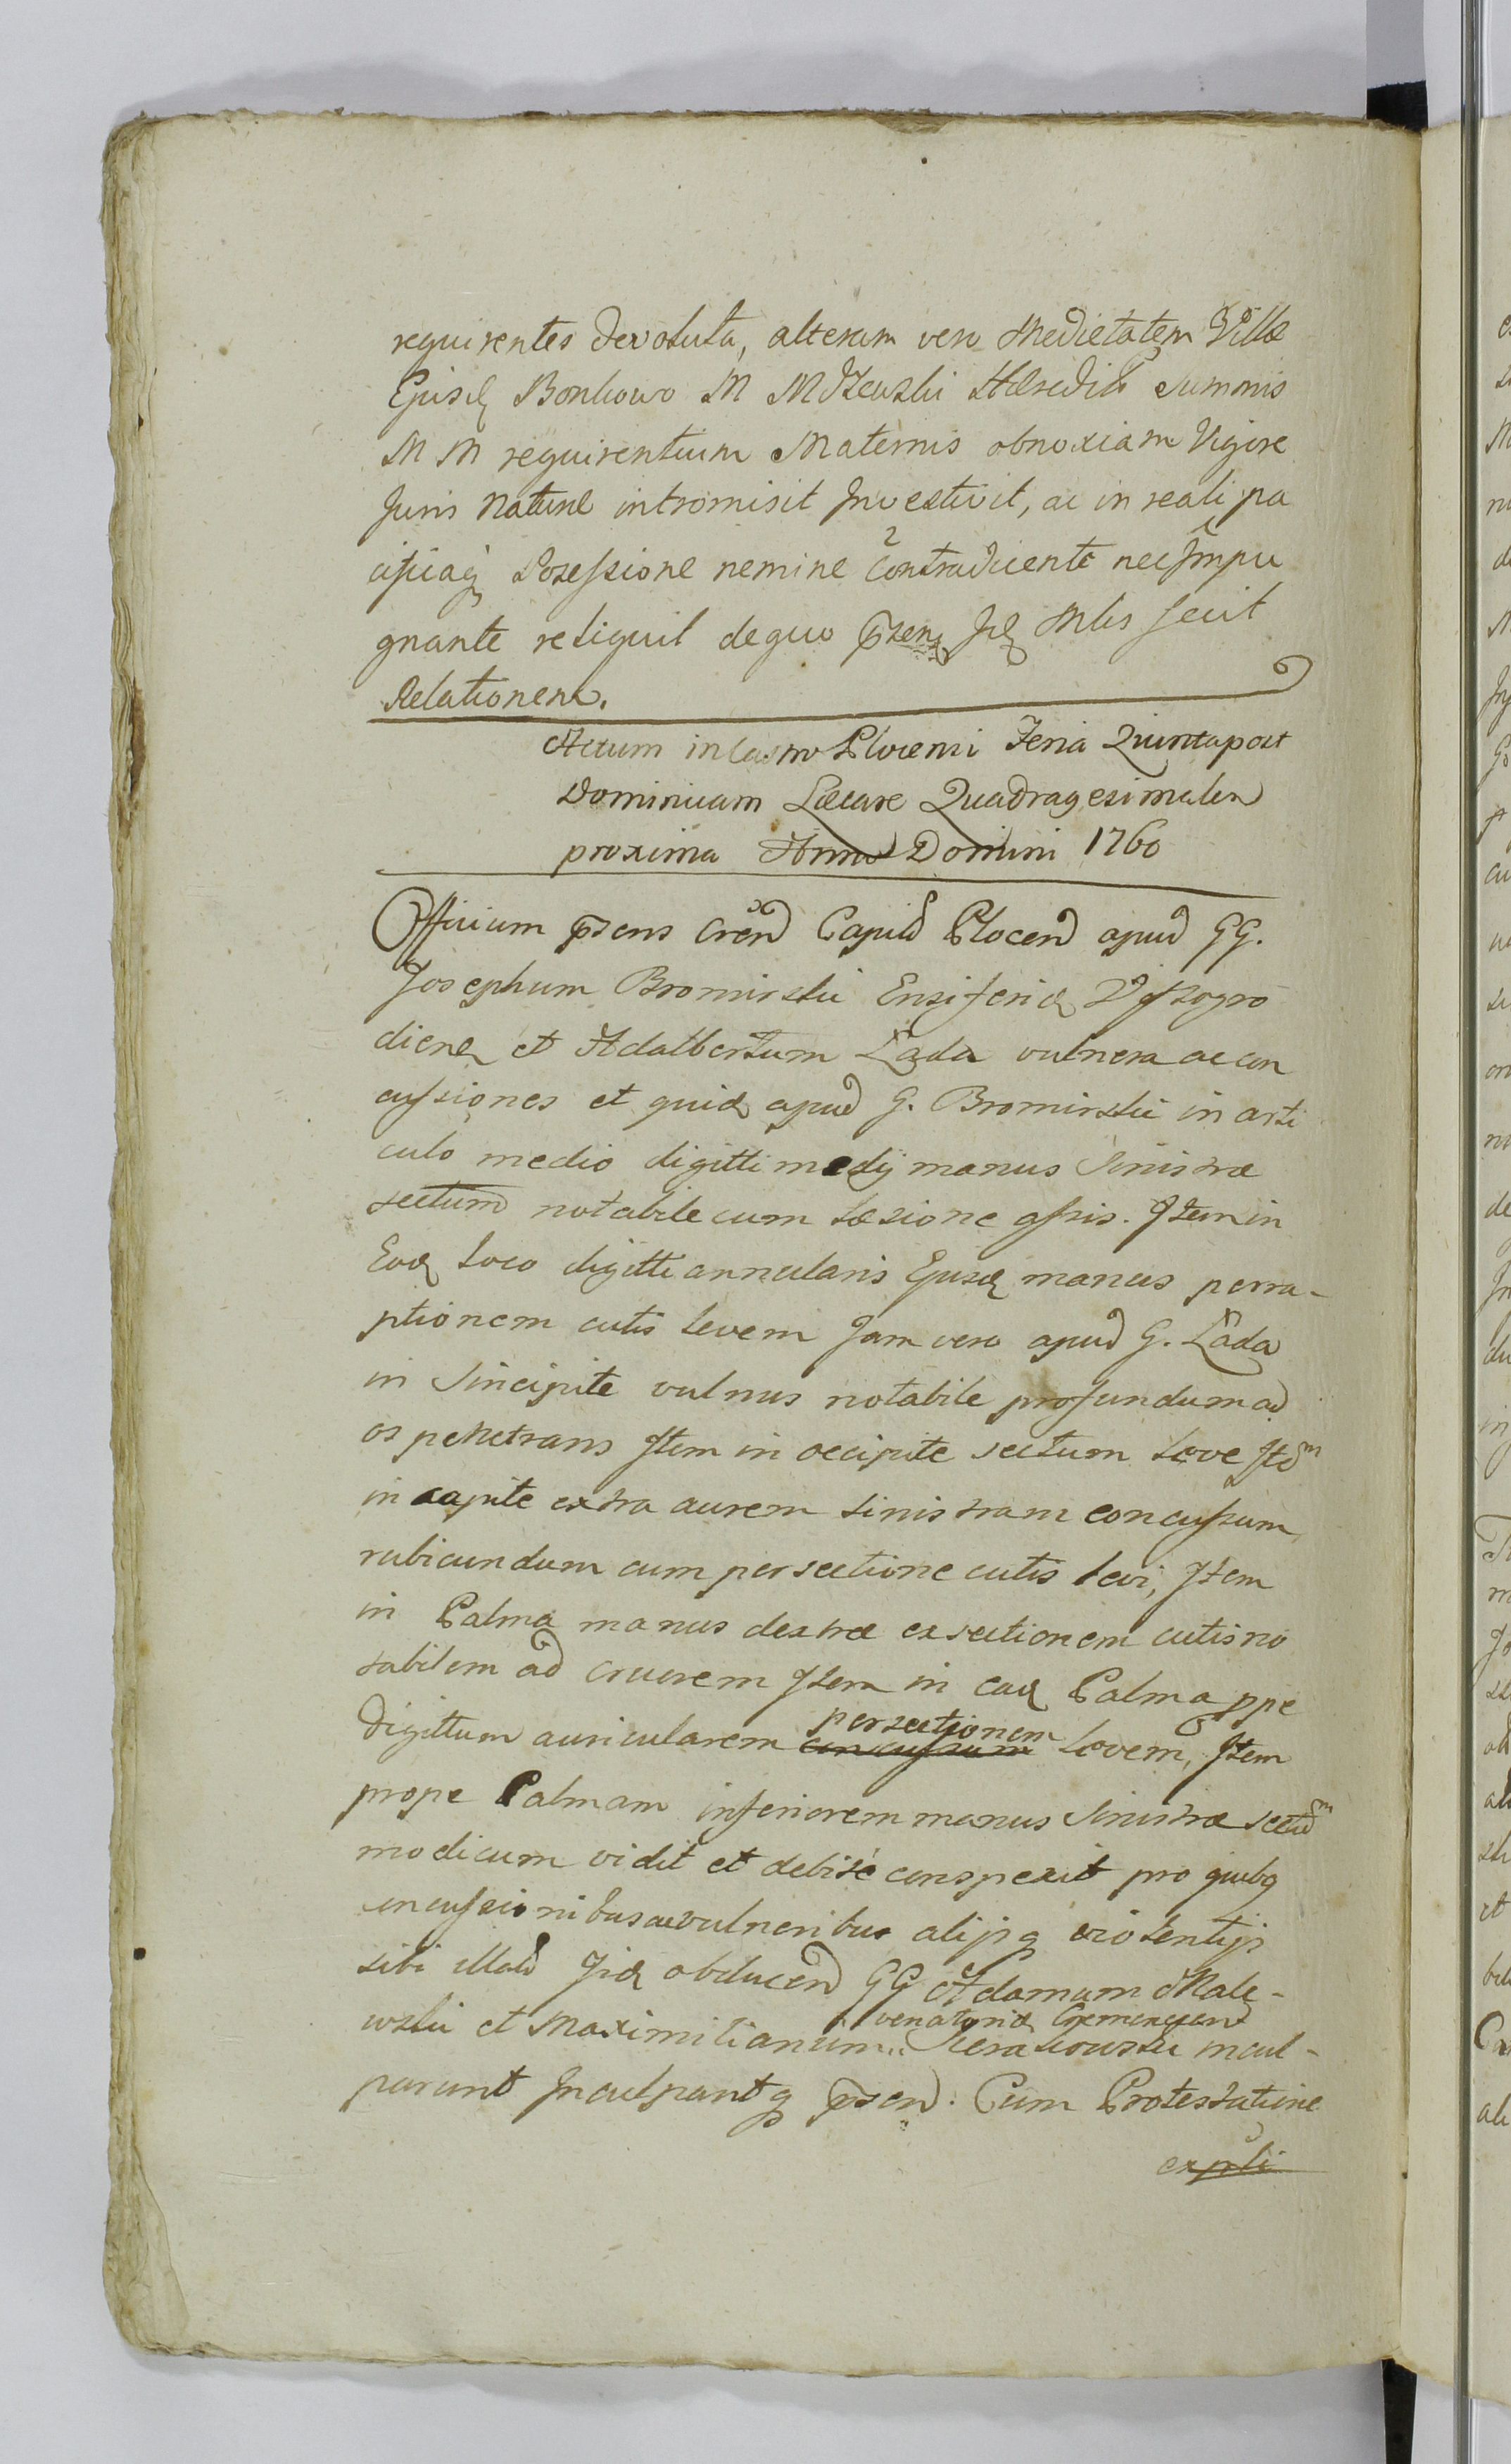 requirentes devoluta, alteram vero Medietatem Villæ
Ejusd Bonkowo M Mdzewski Hæredit Summis
M M requirentium Maternis obnoxiam Vigore
Juris Naturæ intromisit Investivit, ac in reali pa
cificaq Possessione nemine Contradicente nec Impu
gnante reliquit de quo p̄sen Jd Mlis fecit
Relationem.
Actum in Castro Plocensi Feria Quinta post
Dominicam Lætare Quadragesimalem
proxima Anno Domini 1760
Officium p̄sens Cren Capitl Plocen apud GG.
Josephum Bromirski Ensiferid Vyszogro
dien et Adalbertum Łada vulnera ac con
cussiones et quid apud G. Bromirski in arti
culo medio digitti medij manus Sinistræ
sectum notabile cum læsione ossis. Item in
Eod loco digitti annularis Ejusd manus perra-
ptionem cutis levem Jam vero apud G. Łada
in Sincipite vulnus notabile profundum ad
os penetrans Item in occipite sectum leve Itm
in capite extra aurem sinistram concussum
rubicundum cum persectione cutis levi, Item
in Palma manus dextræ exsectionem cutis no
tabilem ad cruorem Item in ead Palma ppe
digittum auricularem concussum persectionem levem, Item
prope Palmam inferiorem manus Sinistræ sectum
modicum vidit et debite conspexit pro quibq
concussionibus ac vulneribus alijsq violentijs
sibi illat Jid obducend GG Adamum Male-
wski et Maximilianum venatorid Sierakowski incul-
parunt Inculpantq p̄sen. Cum Protestatione
expli